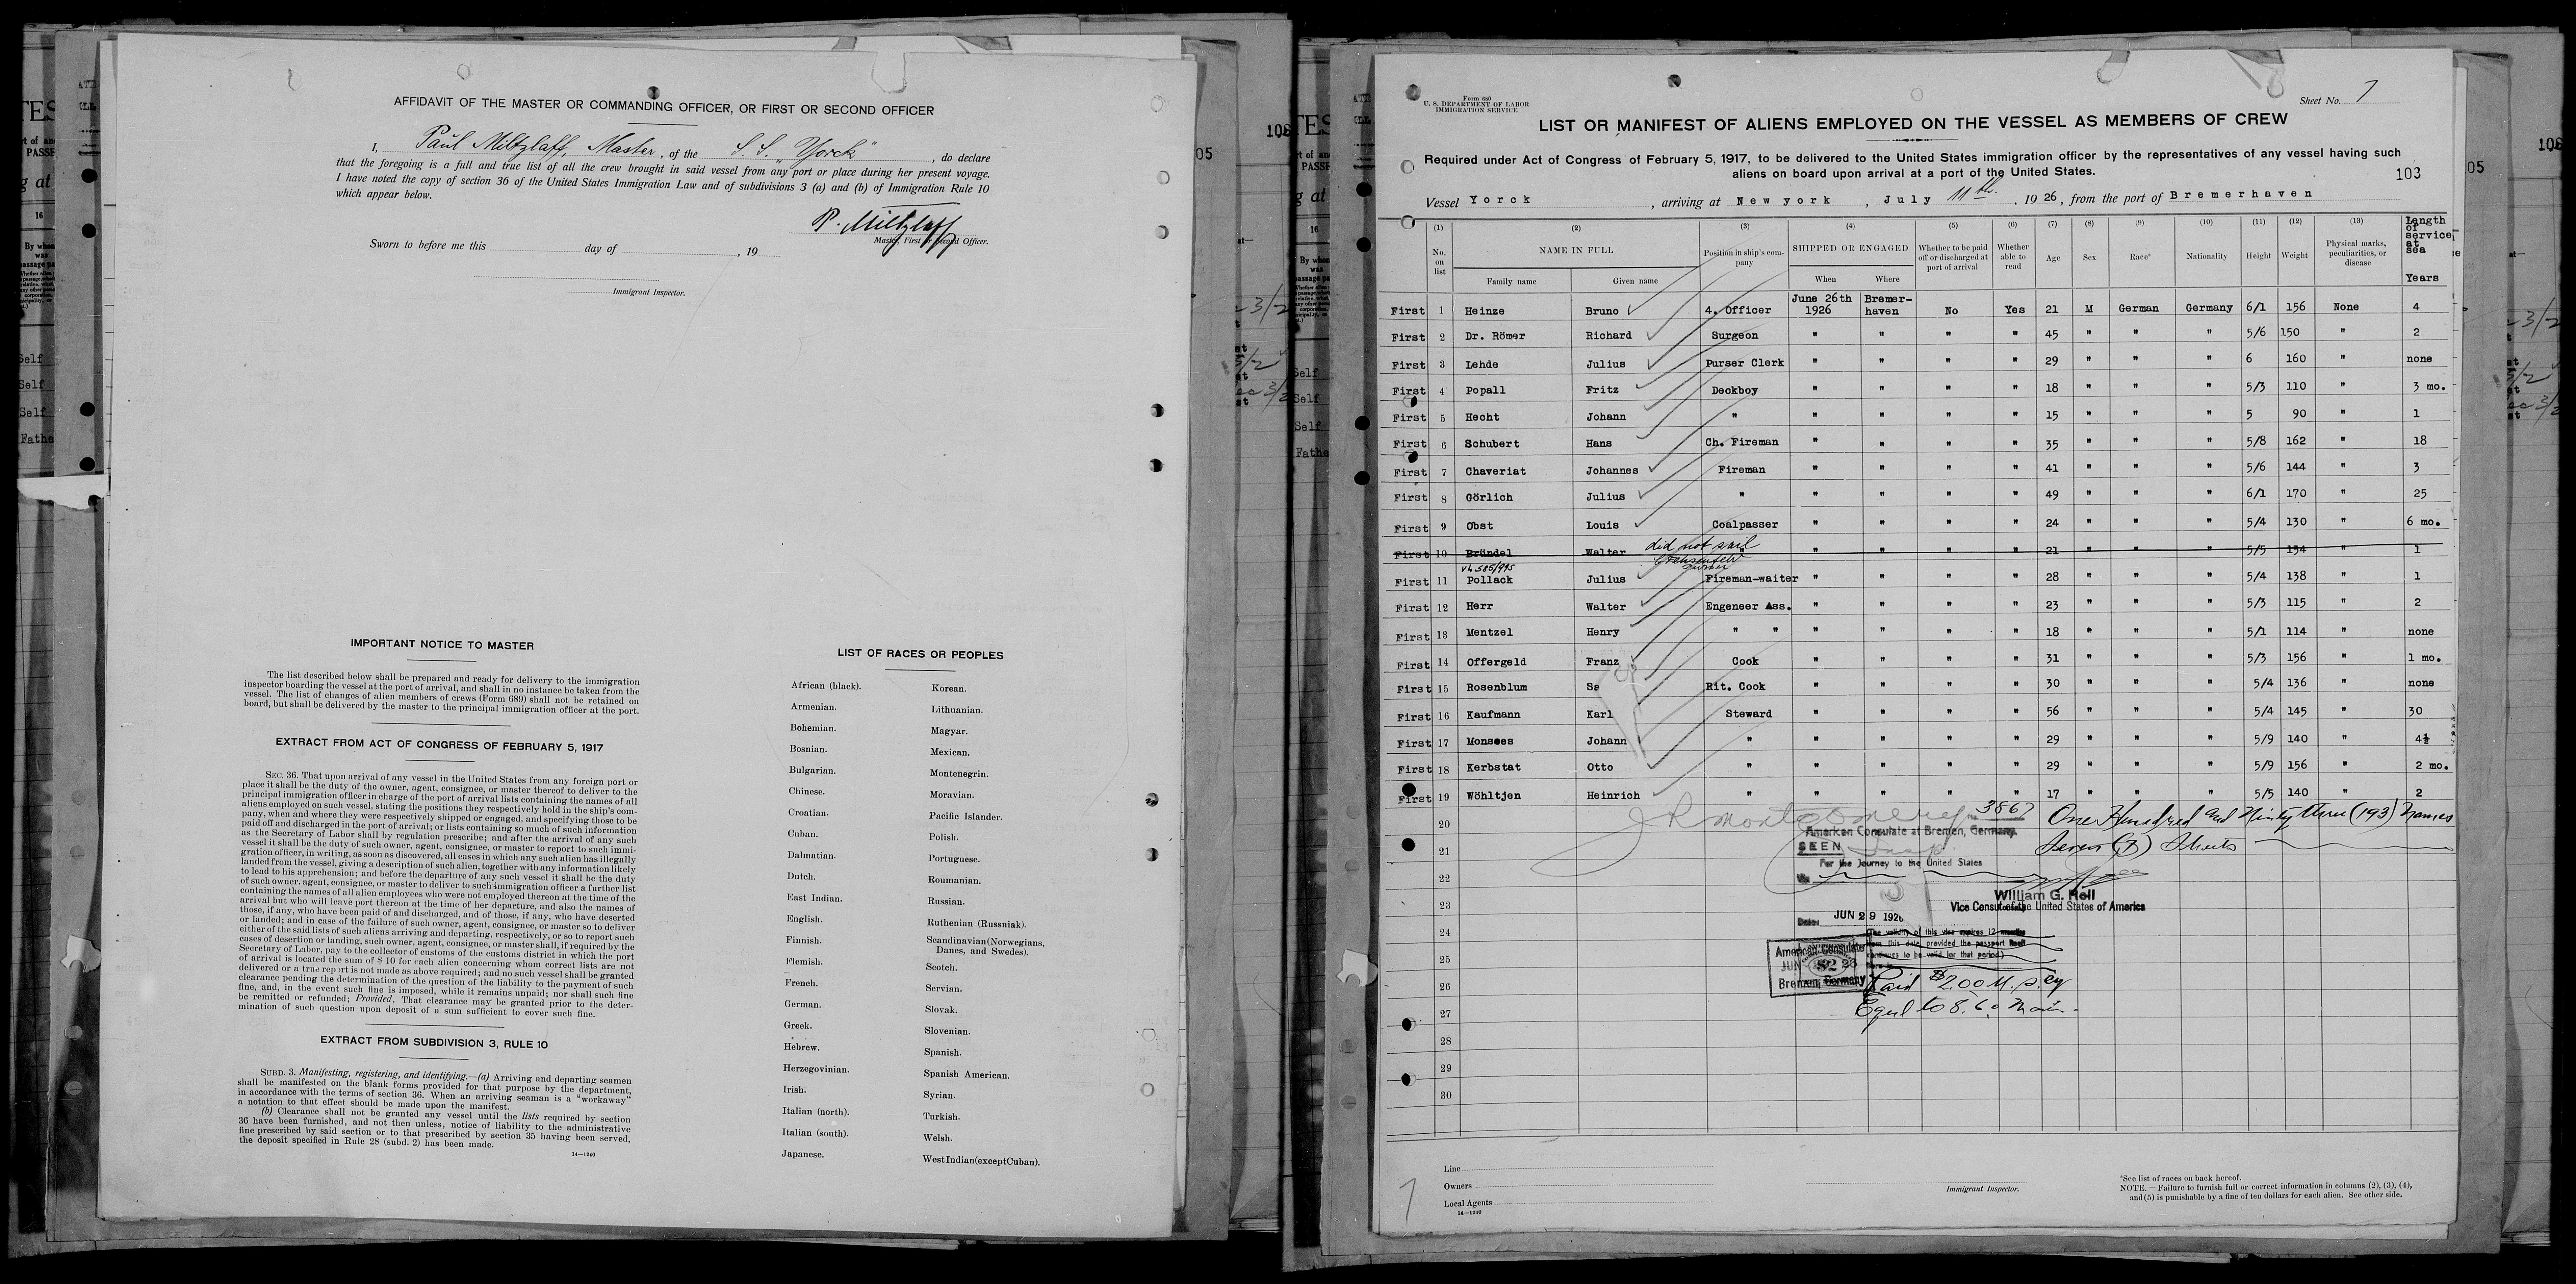 AFFIDAVIT OF THE MASTER OR COMMANDING OFFICER, OR FIRST OR SECOND OFFICER
I, Paul Miltzlaff, Master, of the S. S. "Yorck", do declare
that the foregoing is a full and true list of all the crew brought in said vessel from any port or place during her present voyage.
I have noted the copy of section 36 of the United States Immigration Law and of subdivisions 3 (a) and (b) of Immigration Rule 10
which appear below.
P. Miltzlaff
Master, First or Second Officer.
Sworn to before me this day of , 19
Immigrant Inspector.
IMPORTANT NOTICE TO MASTER
The list described below shall be prepared and ready for delivery to the immigration
inspector boarding the vessel at the port of arrival, and shall in no instance be taken from the
vessel. The list of changes of alien members of crews (Form 689) shall not be retained on
board, but shall be delivered by the master to the principal immigration officer at the port.
EXTRACT FROM ACT OF CONGRESS OF FEBRUARY 5, 1917
SEC. 36. That upon arrival of any vessel in the United States from any foreign port or
place it shall be the duty of the owner, agent, consignee, or master thereof to deliver to the
principal immigration officer in charge of the port of arrival lists containing the names of all
aliens employed on such vessel, stating the positions they respectively hold in the ship's com-
pany, when and where they were respectively shipped or engaged, and specifying those to be
paid off and discharged in the port of arrival; or lists containing so much of such information
as the Secretary of Labor shall by regulation prescribe; and after the arrival of any such
vessel it shall be the duty of such owner, agent, consignee, or master to report to such immi-
gration officer, in writing, as soon as discovered, all cases in which any such alien has illegally
landed from the vessel, giving a description of such alien, together with any information likely
to lead to his apprehension; and before the departure of any such vessel it shall be the duty
of such owner, agent, consignee, or master to deliver to such immigration officer a further list
containing the names of all alien employees who were not employed thereon at the time of the
arrival but who will leave port thereon at the time of her departure, and also the names of
those, if any, who have been paid of and discharged, and of those, if any, who have deserted
or landed; and in case of the failure of such owner, agent, consignee, or master so to deliver
either of the said lists of such aliens arriving and departing, respectively, or so to report such
cases of desertion or landing, such owner, agent, consignee, or master shall, if required by the
Secretary of Labor, pay to the collector of customs of the customs district in which the port
of arrival is located the sum of $ 10 for each alien concerning whom correct lists are not
delivered or a true report is not made as above required; and no such vessel shall be granted
clearance pending the determination of the question of the liability to the payment of such
fine, and, in the event such fine is imposed, while it remains unpaid; nor shall such fine
be remitted or refunded; Provided, That clearance may be granted prior to the deter-
mination of such question upon deposit of a sum sufficient to cover such fine.
EXTRACT FROM SUBDIVISION 3, RULE 10
SUBD. 3. Manifesting, registering, and identifying.—(a) Arriving and departing seamen
shall be manifested on the blank forms provided for that purpose by the department,
in accordance with the terms of section 36. When an arriving seaman is a "workaway"
a notation to that effect should be made upon the manifest.
(b) Clearance shall not be granted any vessel until the lists required by section
36 have been furnished, and not then unless, notice of liability to the administrative
fine prescribed by said section or to that prescribed by section 35 having been served,
the deposit specified in Rule 28 (subd. 2) has been made.
14—1240
LIST OF RACES OR PEOPLES
African (black).
Armenian.
Bohemian.
Bosnian.
Bulgarian.
Chinese.
Croatian.
Cuban.
Dalmatian.
Dutch.
East Indian.
English.
Finnish.
Flemish.
French.
German.
Greek.
Hebrew.
Herzegovinian.
Irish.
Italian (north).
Italian (south).
Japanese.
Korean.
Lithuanian.
Magyar.
Mexican.
Montenegrin.
Moravian.
Pacific Islander.
Polish.
Portuguese.
Roumanian.
Russian.
Ruthenian (Russniak).
Scandinavian (Norwegians,
Danes, and Swedes).
Scotch.
Servian.
Slovak.
Slovenian.
Spanish.
Spanish American.
Syrian.
Turkish.
Welsh.
West Indian (except Cuban).
Form 680
U. S. DEPARTMENT OF LABOR
IMMIGRATION SERVICE
Sheet No. 7
LIST OR MANIFEST OF ALIENS EMPLOYED ON THE VESSEL AS MEMBERS OF CREW
Required under Act of Congress of February 5, 1917, to be delivered to the United States immigration officer by the representatives of any vessel having such
aliens on board upon arrival at a port of the United States.
103
Vessel Yorck, arriving at New york, July 11th, 1926, from the port of Bremerhaven
(1) (2) (3) (4) (5) (6) (7) (8) (9) (10) (11) (12) (13)
No. on list NAME IN FULL Family name Given name Position in ship's company SHIPPED OR ENGAGED When Where Whether to be paid off or discharged at port of arrival Whether able to read Age Sex Race* Nationality Height Weight Physical marks, peculiarities, or disease Length of service at sea Years
First 1 Heinze Bruno 4. Officer June 26th 1926 Bremer-haven No Yes 21 M German Germany 6/1 156 None 4
First 2 Dr. Römer Richard Surgeon " " " " 45 " " " 5/6 150 " 2
First 3 Lehde Julius Purser Clerk " " " " 29 " " " 6 160 " none
First 4 Popall Fritz Deckboy " " " " 18 " " " 5/3 110 " 3 mo.
First 5 Hecht Johann " " " " " 15 " " " 5 90 " 1
First 6 Schubert Hans Ch. Fireman " " " " 35 " " " 5/8 162 " 18
First 7 Chaveriat Johannes Fireman " " " " 41 " " " 5/6 144 " 3
First 8 Görlich Julius " " " " " 49 " " " 6/1 170 " 25
First 9 Obst Louis Coalpasser " " " " 24 " " " 5/4 130 " 6 mo.
First 10 Bründel Walter did not sail " " " " " 21 " " " 5/5 134 " 1
First 11 Pollack Julius Fireman-waiter " " " " 28 " " " 5/4 138 " 1
First 12 Herr Walter Engeneer Ass. " " " " 23 " " " 5/3 115 " 2
First 13 Mentzel Henry " " " " " " 18 " " " 5/1 114 " none
First 14 Offergeld Franz Cook " " " " 31 " " " 5/3 156 " 1 mo.
First 15 Rosenblum Sa Rit. Cook " " " " 30 " " " 5/4 136 " none
First 16 Kaufmann Karl Steward " " " " 56 " " " 5/4 145 " 30
First 17 Monsees Johann " " " " " 29 " " " 5/9 140 " 4½
First 18 Kerbstat Otto " " " " " 29 " " " 5/9 156 " 2 mo.
First 19 Wöhltjen Heinrich " " " " " 17 " " " 5/5 140 " 2
20 3867 One Hundred and Ninty three (193) Names
American Consulate at Bremen, Germany.
21 SEEN Seven (7) Sheets
For the Journey to the United States
22 No.
23 William G. Roll
Vice Consul of the United States of America
Date: JUN 29 1926
24 The validity of this visa expires 12 months
from this date, provided the passport itself
25 continues to be valid for that period
American Consulate
JUN 29 26
Bremen, Germany
26 Paid $2.00 U.S. cy
27 Equal to 8.60 Marks
28
29
30
Line
Owners
Local Agents
14—1240
Immigrant Inspector.
*See list of races on back hereof.
NOTE.—Failure to furnish full or correct information in columns (2), (3), (4),
and (5) is punishable by a fine of ten dollars for each alien. See other side.
7